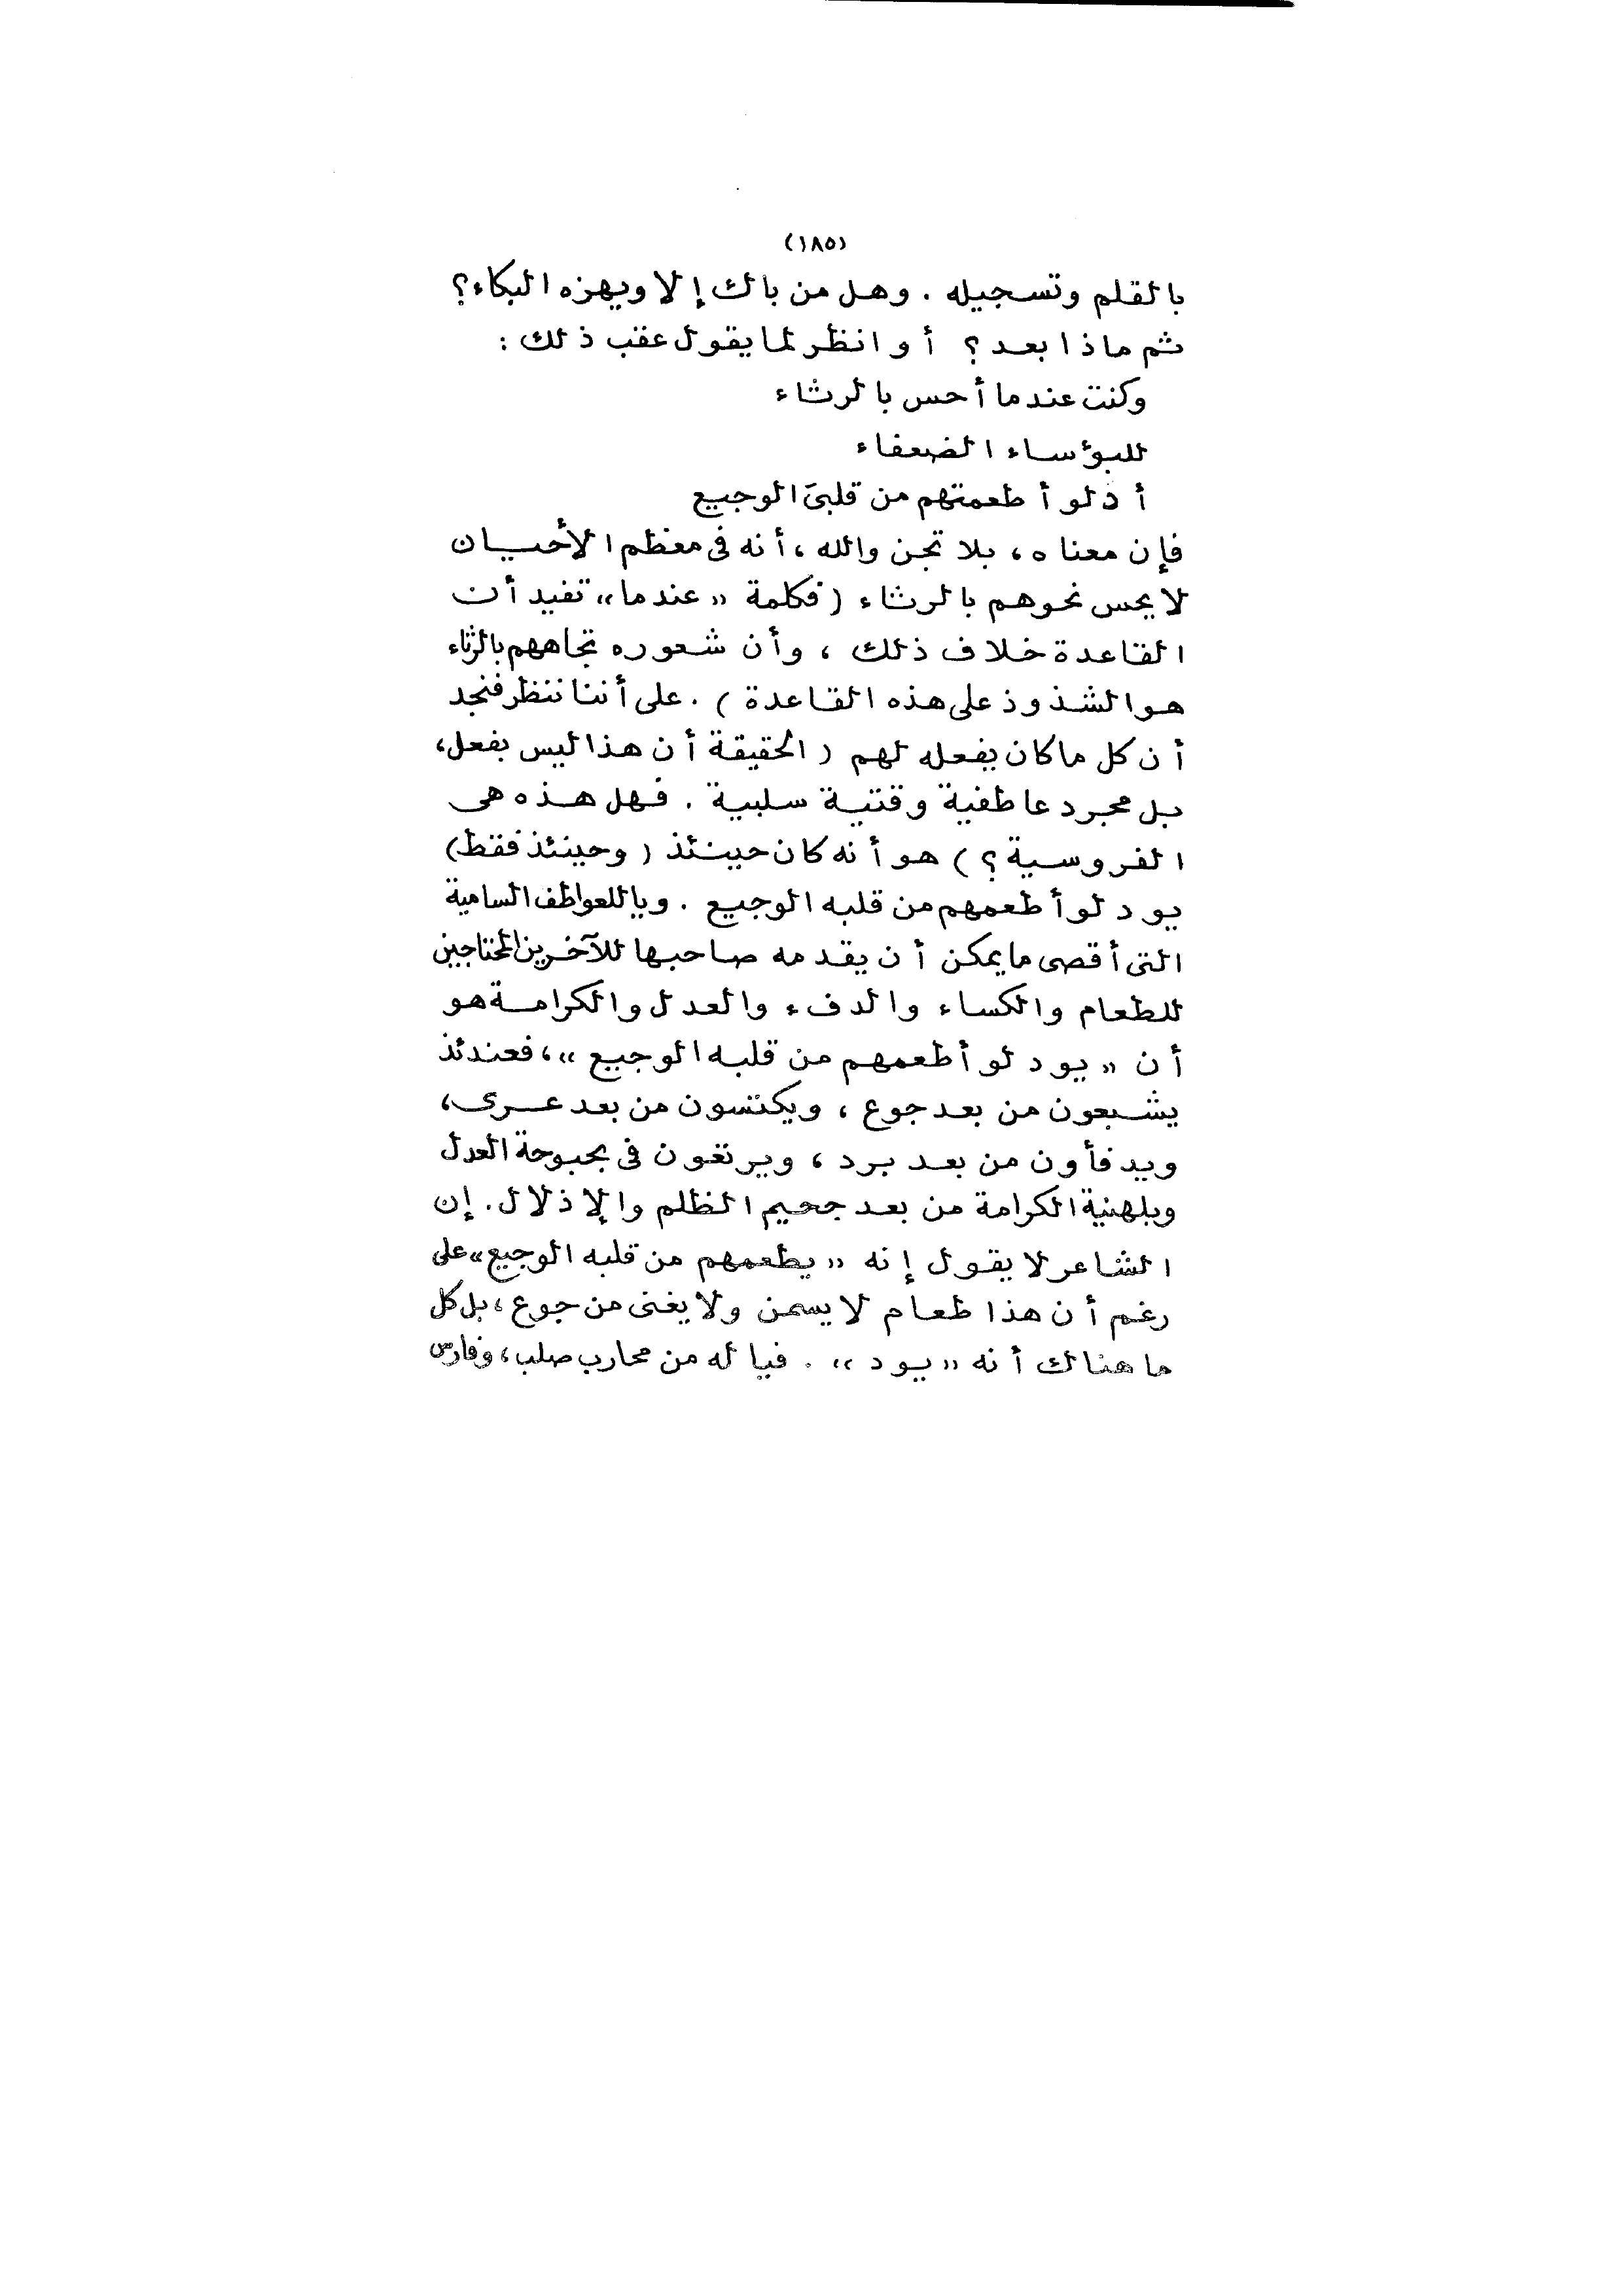 (١٨٥)
بالقلم وتسجيله . وهل من باك إلا ويهزه البكاء؟
ثم ماذا بعد ؟ أو انظر لما يقول عقب ذلك :
وكنت عندما أحس بالرثاء
للبؤساء الضعفاء
أود لو أطعمتهم من قلبى الوجيع
فإن معناه ، بلا تجن والله ، أنه فى معظم الأحيان
لا يحس نحوهم بالرثاء ( فكلمة « عندما » تفيد أن
القاعدة خلاف ذلك ، وأن شعوره تجاههم بالرثاء
هو الشذوذ على هذه القاعدة ) . على أننا ننظر فنجد
أن كل ما كان يفعله لهم ( الحقيقة أن هذا ليس بفعل ،
بل مجرد عاطفية وقتية سلبية . فهل هذه هى
الفروسية ؟ ) هو أنه كان حينئذ ( وحينئذ فقط )
يود لو أطعمهم من قلبه الوجيع . ويا للعواطف السامية
التى أقصى ما يمكن أن يقدمه صاحبها للآخرين المحتاجين
للطعام والكساء والدفء والعدل والكرامة هو
أن « يود لو أطعمهم من قلبه الوجيع » ، فعندئذ
يشبعون من بعد جوع ، ويكتسون من بعد عرى ،
ويدفأون من بعد برد ، ويرتعون فى بحبوحة العدل
وبلهنية الكرامة من بعد جحيم الظلم والإذلال . إن
الشاعر لا يقول إنه « يطعمهم من قلبه الوجيع » على
رغم أن هذا طعام لا يسمن ولا يغنى من جوع ، بل كل
ما هنالك أنه « يود » . فيا له من محارب صلب ، وفارس